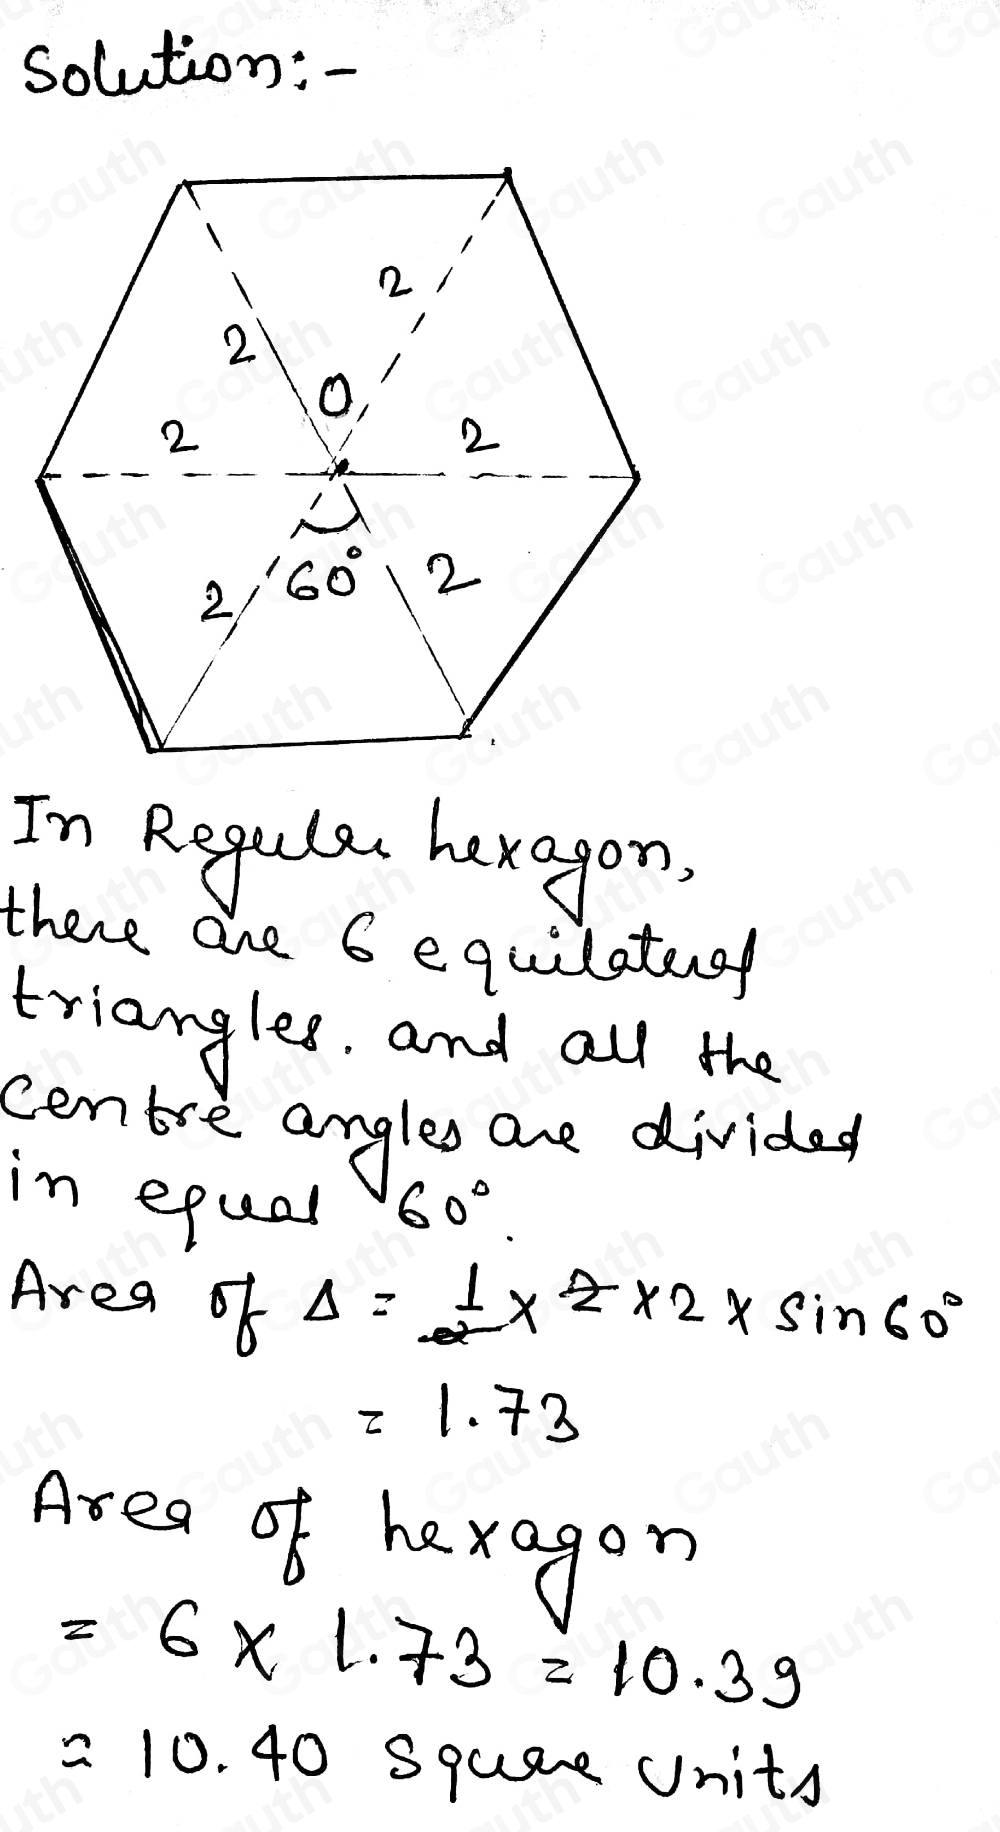 Solution:-
2
2
O
2
2
60°
2
2
In Regular hexagon,
there are 6 equilateral
triangles. and all the
centre angles are divided
in equal 60°.
Area of Δ = 1/2 × 2 × 2 × sin60°
= 1.73
Area of hexagon
= 6 × 1.73 = 10.39
≈ 10.40 square units